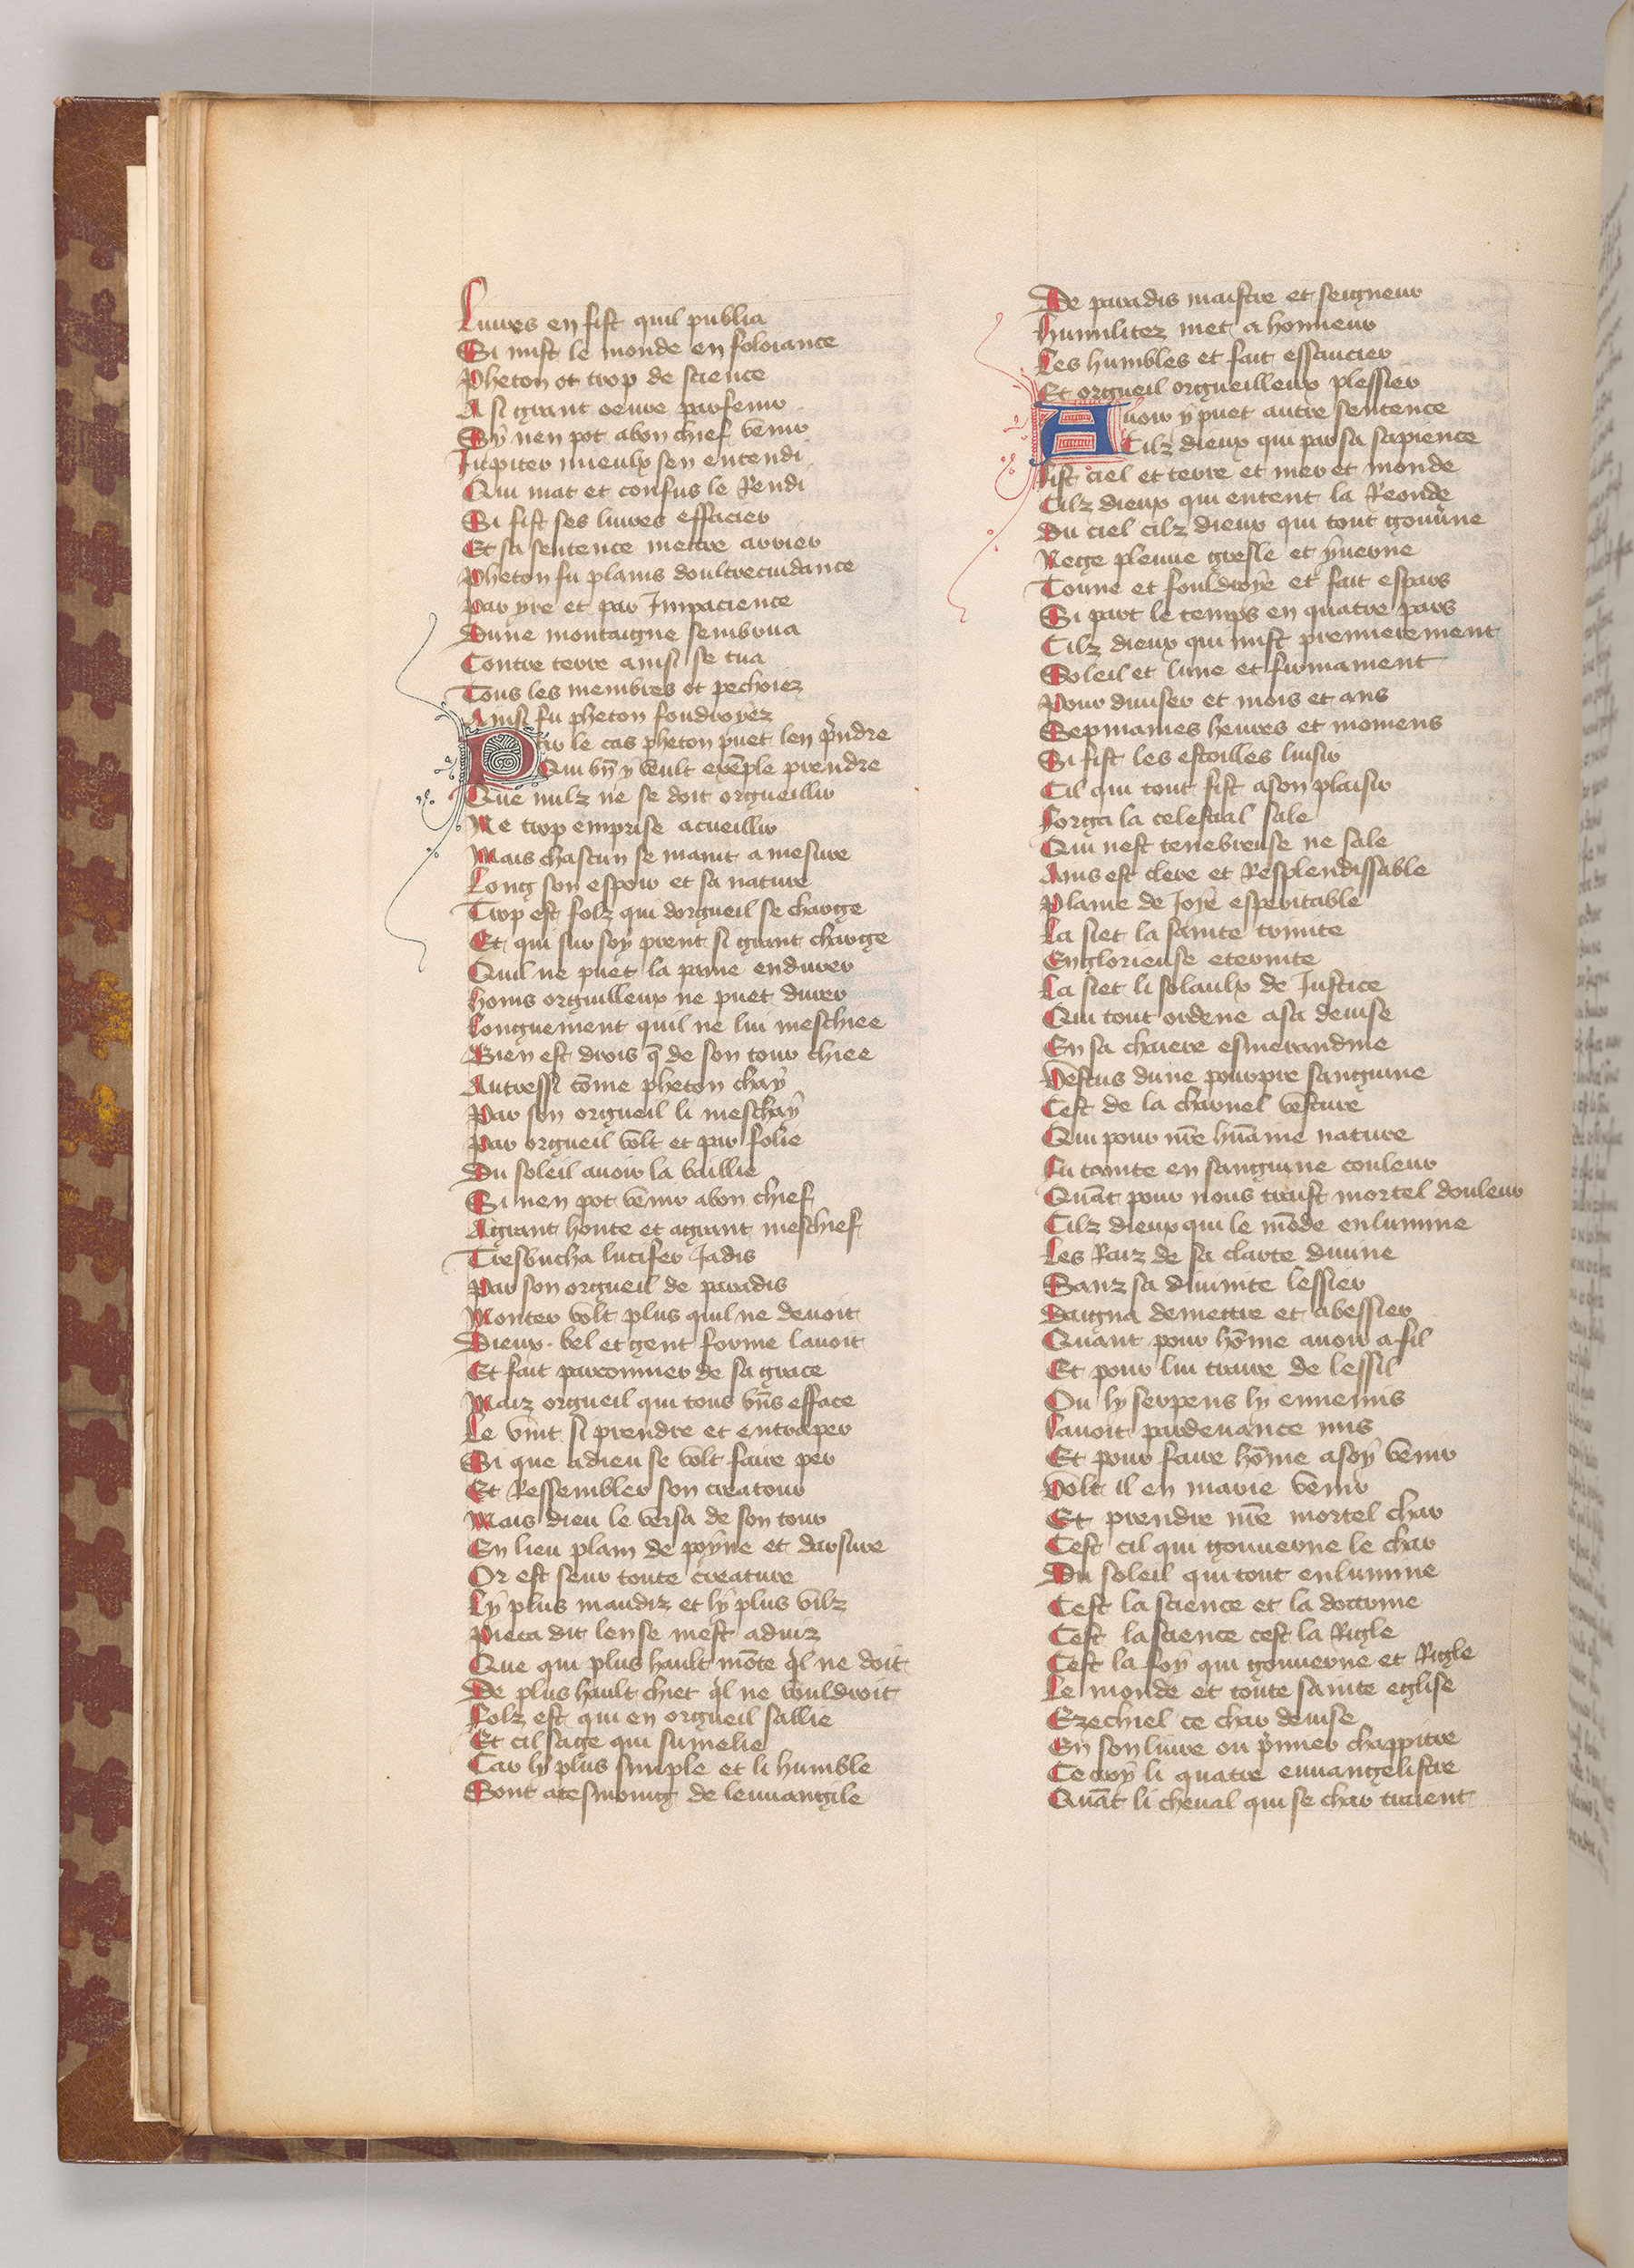 Liures en fist quil publia
Si mist le monde en foloiance
Pheton ot trop de science
A si grant oeure parfenir
Sy nen pot a bon chief venir
Jupiter mieulx sen entendi
Qui mat et confus le Rendi
Si fist ses liures effacier
Et sa sentence mettre arrier
Pheton fu plains doultrecuidance
Par yre et par Impacience
Dune montaigne sembrua
Contre terre ainsi se tua
Tous les membres ot pechoiez
Ainsi fu pheton foudroyez
Par le cas pheton puet len p̃ndre
Qui bñ y veult exẽple prendre
Que nulz ne se doit orgueillir
Ne trop emprise acueillir
Mais chascun se maint a mesure
Long son espoir et sa nature
Trop est folz qui dorgueil se charge
Et qui sur soy prent si grant charge
Quil ne puet la paine endurer
homs orguilleux ne puet durer
Longuement quil ne lui meschiee
Bien est drois q̃ de son tour chiee
Autressi cõme pheton chay
Par son orgueil li meschay
Par orgueil volt et par folie
Du soleil auoir la baillie
Si nen pot venir a bon chief
A grant honte et a grant meschief
Tresbucha lucifer Jadis
Par son orgueil de paradis
Monter volt plus quil ne deuoit
Dieux. bel et gent forme lauoit
Et fait parconnier de sa grace
Maiz orgueil qui tous bñs efface
Le vint si prendre et entraper
Si que a dieu se volt faire per
Et Ressembler son creatour
Mais dieu le versa de son tour
En lieu plain de poyne et darsure
Or est seur toute creature
Ly plus maudiz et ly plus vilz
Pieca dit len se mest aduiz
Que qui plus hault mõte q̃l ne doit
De plus hault chiet q̃l ne vouldroit
Folz est qui en orgueil sallie
Et cil sage qui sumelie
Car ly plus simple et li humble
Sont a tesmoing de leuuangile
De paradis maistre et seigneur
humilitez met a honneur
Les humbles et fait essaucier
Et orgueil orgueilleux plessier
Auoir y puet autre sentence
Cilz dieux qui par sa sapience
Fist ciel et terre et mer et monde
Cilz dieux qui entent la Reonde
Du ciel cilz dieux qui tout gouũne
Nege pleuue gresle et yuerne
Tonne et fouldroye et fait espars
Si part le temps en quatre pars
Cilz dieux qui mist premierement
Soleil et lune et firmament
Pour diuiser et mois et ans
Sepmaines heures et momens
Si fist les estoilles luisir
Cil qui tout fist a son plaisir
Forga la celestial sale
Qui nest tenebreuse ne sale
Ains est clere et Resplendissable
Plaine de Joye esperitable
La siet la sainte trinite
En glorieuse eternite
La siet li solaulx de Justice
Qui tout ordene a sa deuise
En sa chaiere esmeraudine
Vestus dune pourpre sanguine
Cest de la charnel vesture
Qui pour nr̃e hũaine nature
Fu tainte en sanguine couleur
Quãt pour nous traist mortel douleur
Cilz dieux qui le mõde enlumine
Les Raiz de sa clarte diuine
Sanz sa diuinite lessier
Daigna demettre et abessier
Quant pour hõme auoir a fil
Et pour lui traire de lessil
Ou ly serpens ly ennemis
Lauoit par deuance mis
Et pour faire hõme a soy venir
Volt il en marie venir
Et prendre nr̃e mortel char
Cest cil qui gouuerne le char
Du soleil qui tout enlumine
Cest la science et la doctrine
Cest la science cest la Rigle
Cest la foy qui gouuerne et Rigle
Le monde et toute sainte eglise
Ezechiel ce char deuise
En son liure ou p̃mier chappitre
Ce croy li quatre euuangelistre
Quãt li cheual qui se char tirent